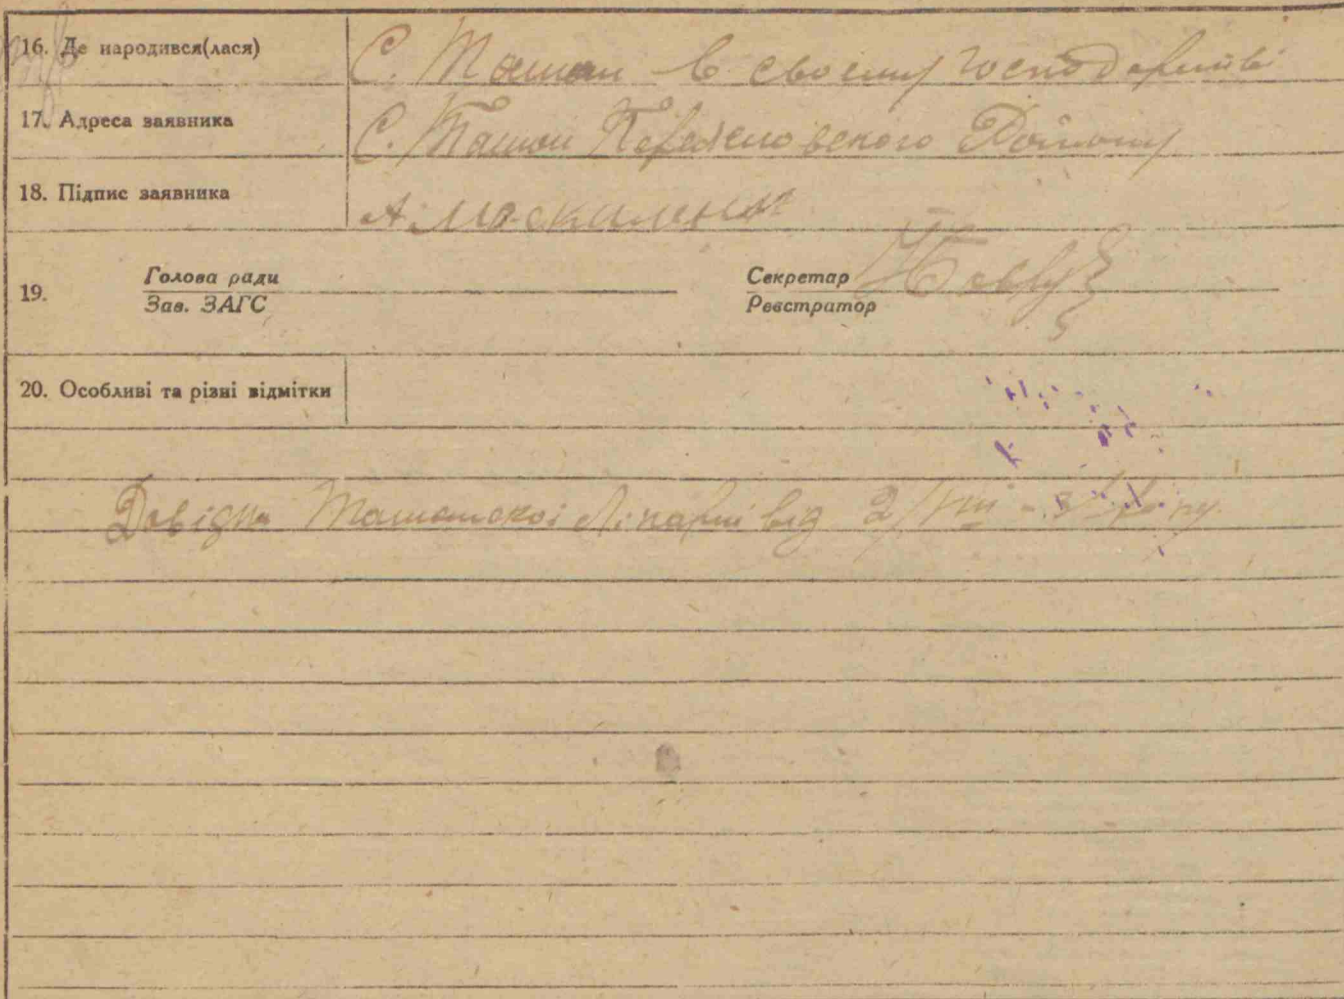 16. Де народився(лася) С. Ташан в своєму господарстві
17. Адреса заявника С. Ташан Переяславського Району
18. Підпис заявника А. Москаленко
19. Голова ради Секретар
Зав. ЗАГС Реєстратор
20. Особливі та різні відмітки
Довідка Ташанської лікарні від 2/VIII